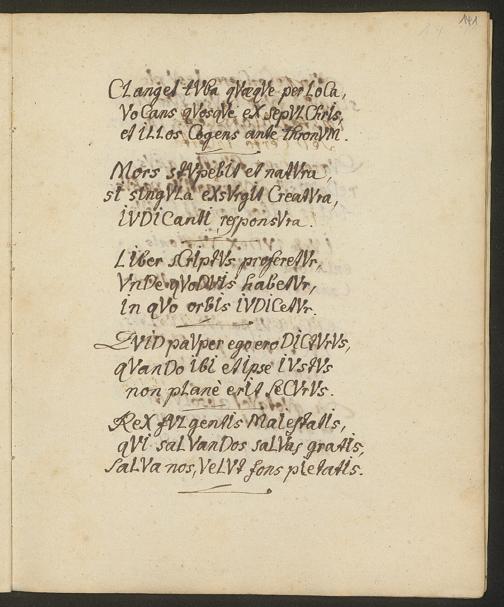 141
CLanget tVba qVæqVe per LoCa,
VoCans qVosqVe eX sepVLChris,
et iLLos Cogens ante thronVM.
Mors stVpebIt et natVra,
si singVLa eXsVrgIt CreatVra,
IVDICantI responsVra.
LIber sCrIptVs proferetVr,
VnDe qVoDVIs habetVr,
in qVo orbis IVDICetVr.
QVID paVper ego ero DICtVrVs,
qVanDo IbI et Ipse IVstVs
non pLanè erIt seCVrVs.
ReX fVLgentis MaIestatIs,
qVI saLVanDos saLVas gratIs,
saLVa nos, VeLVt fons pIetatIs.